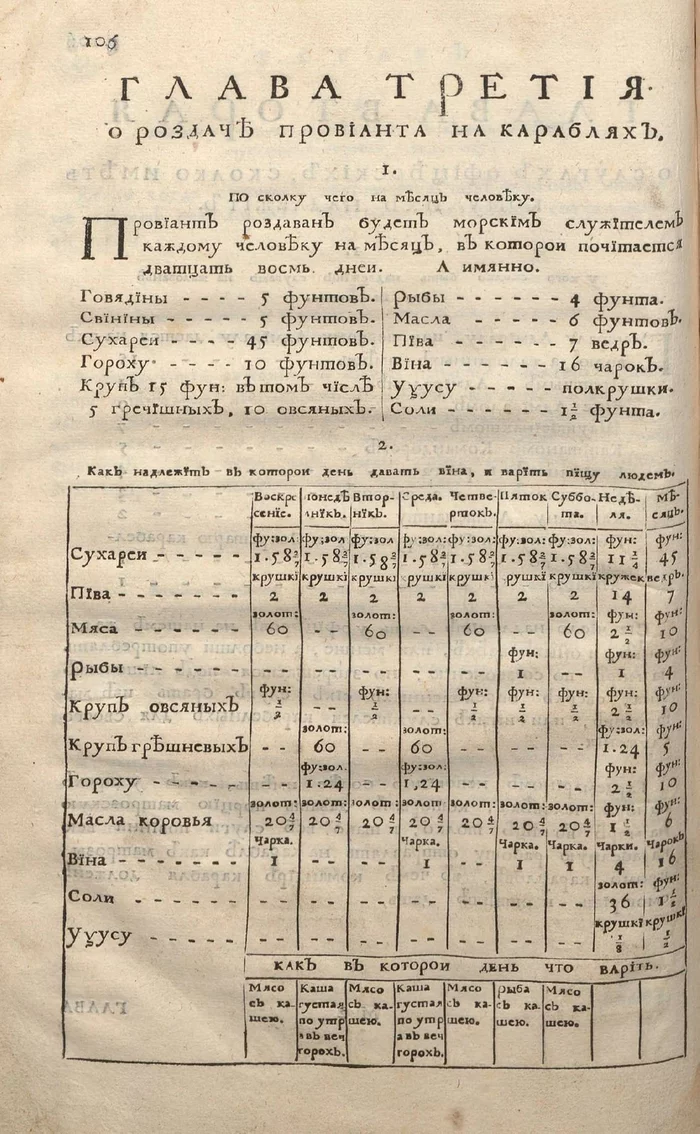 106
ГЛАВА ТРЕТІЯ
О РОЗДАЧѢ ПРОВІАНТА НА КАРАБЛЯХЪ.
1.
По сколку чего на мѣсяцъ человѣку.
Провїантъ роздаванъ будетъ морскїмъ служїтелемъ
каждому человѣку на мѣсяцъ, въ которои почїтается
дватцать восмь днеи. А имянно.
Говядїны - - - - 5 фунтовъ.
Свїнїны - - - - 5 фунтовъ.
Сухареи - - - - 45 фунтовъ.
Гороху - - - - 10 фунтовъ.
Крупъ 15 фун: въ томъ чїслѣ
5 гречїшныхъ, 10 овсяныхъ.
Рыбы - - - - - - 4 фунта.
Масла - - - - - 6 фунтовъ.
Пїва - - - - - - 7 ведръ.
Вїна - - - - - - 16 чарокъ.
Уѯусу - - - - - полкрушки.
Соли - - - - - - 1½ фунта.
2.
Какъ надлежїтъ въ которои день давать вїна, и варїть пїщу людемъ.
Воскресенїе. понедѣлнїкъ. Вторнїкъ. Среда. Четвертокъ. Пяток Суббота. Недѣля. мѣсяцъ.
фу:зол: фу:зол фу:зол: фу:зол: фу:зол: фу:зол: фу:зол: фун: фун:
Сухареи - - - - - 1.58 2/7 1.58 2/7 1.58 2/7 1.58 2/7 1.58 2/7 1.58 2/7 1.58 2/7 11 ¼ 45
крушкї крушкї крушкї рушкї крушкї рушкї крушкї кружек ведръ.
Пїва - - - - - - - 2 2 2 2 2 2 2 14 7
золот: золот: золот: золот: фун: фун:
Мяса - - - - - - 60 - - 60 - - 60 - - 60 2 ½ 10
фун: фун: фун:
рыбы - - - - - - - - - - - - - - - - 1 - - 1 4
фун: фун: фун: фун: фун: фун: фун:
Крупъ овсяныхъ ½ - - ½ - - ½ ½ ½ 2 ½ 10
золот: золот: фу:зол: фун:
Крупъ грѣшневыхъ - - 60 - - 60 - - - - - - 1.24 5
фу:зол: фу:зол: фун: фун:
Гороху - - - - - - - 1.24 - - 1.24 - - - - - - 2 ½ 10
золот: золот: золот: золот: золот: золот: золот: фун: фун:
Масла коровья 20 4/7 20 4/7 20 4/7 20 4/7 20 4/7 20 4/7 20 4/7 1 ½ 6
Чарка. Чарка. Чарка. Чарка. Чарки. Чарокъ
Вїна - - - - - - 1 - - - - 1 - - 1 1 4 16
золот: фун:
Соли - - - - - - - - - - - - - - - - - - - - 36 1 ½
крушкї крушкї
Уѯусу - - - - - - - - - - - - - - - - - - - ⅛ ½
КАКЪ ВЪ КОТОРОИ ДЕНЬ ЧТО ВАРІТЬ.
Мясо Каша Мясо Каша Мясо рыба Мясо
съ ка- густая съ ка- густая съ ка- съ ка- съ ка-
шею. по утр шею. по утр шею. шею. шею.
а въ веч а въ веч
горохъ. горохъ.